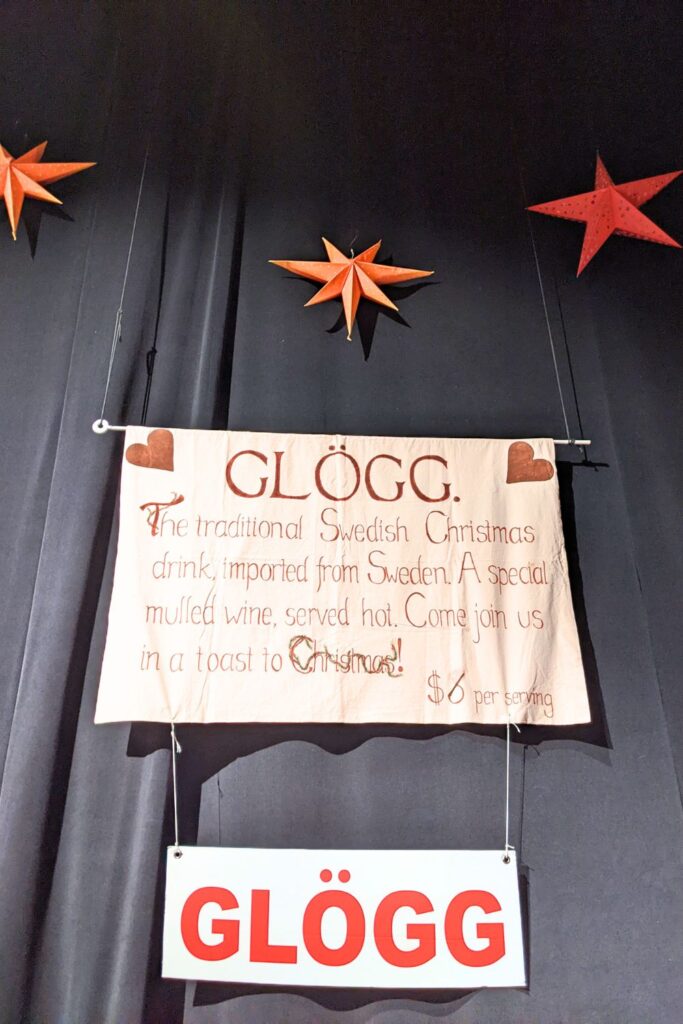 GLÖGG.
The traditional Swedish Christmas
drink, imported from Sweden. A special
mulled wine, served hot. Come join us
in a toast to Christmas!
$6 per serving
GLÖGG